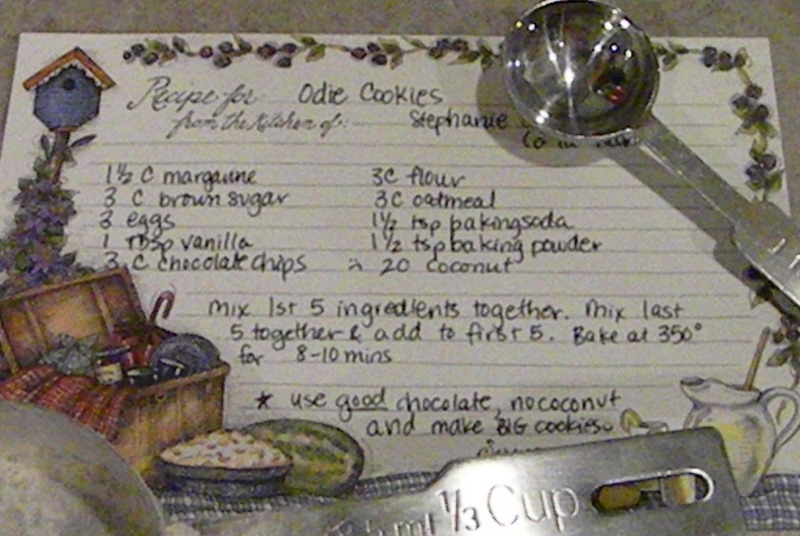 Recipe for: Odie Cookies
from the Kitchen of: Stephanie
1½ C margarine 3C flour
3 C brown sugar 3C oatmeal
3 eggs 1½ tsp bakingsoda
1 Tbsp vanilla 1½ tsp baking powder
3 C chocolate chips 20 coconut
Mix 1st 5 ingredients together. Mix last
5 together & add to first 5. Bake at 350°
for 8-10 mins
* use good chocolate, no coconut
and make BIG cookies
ml 1/3 Cup